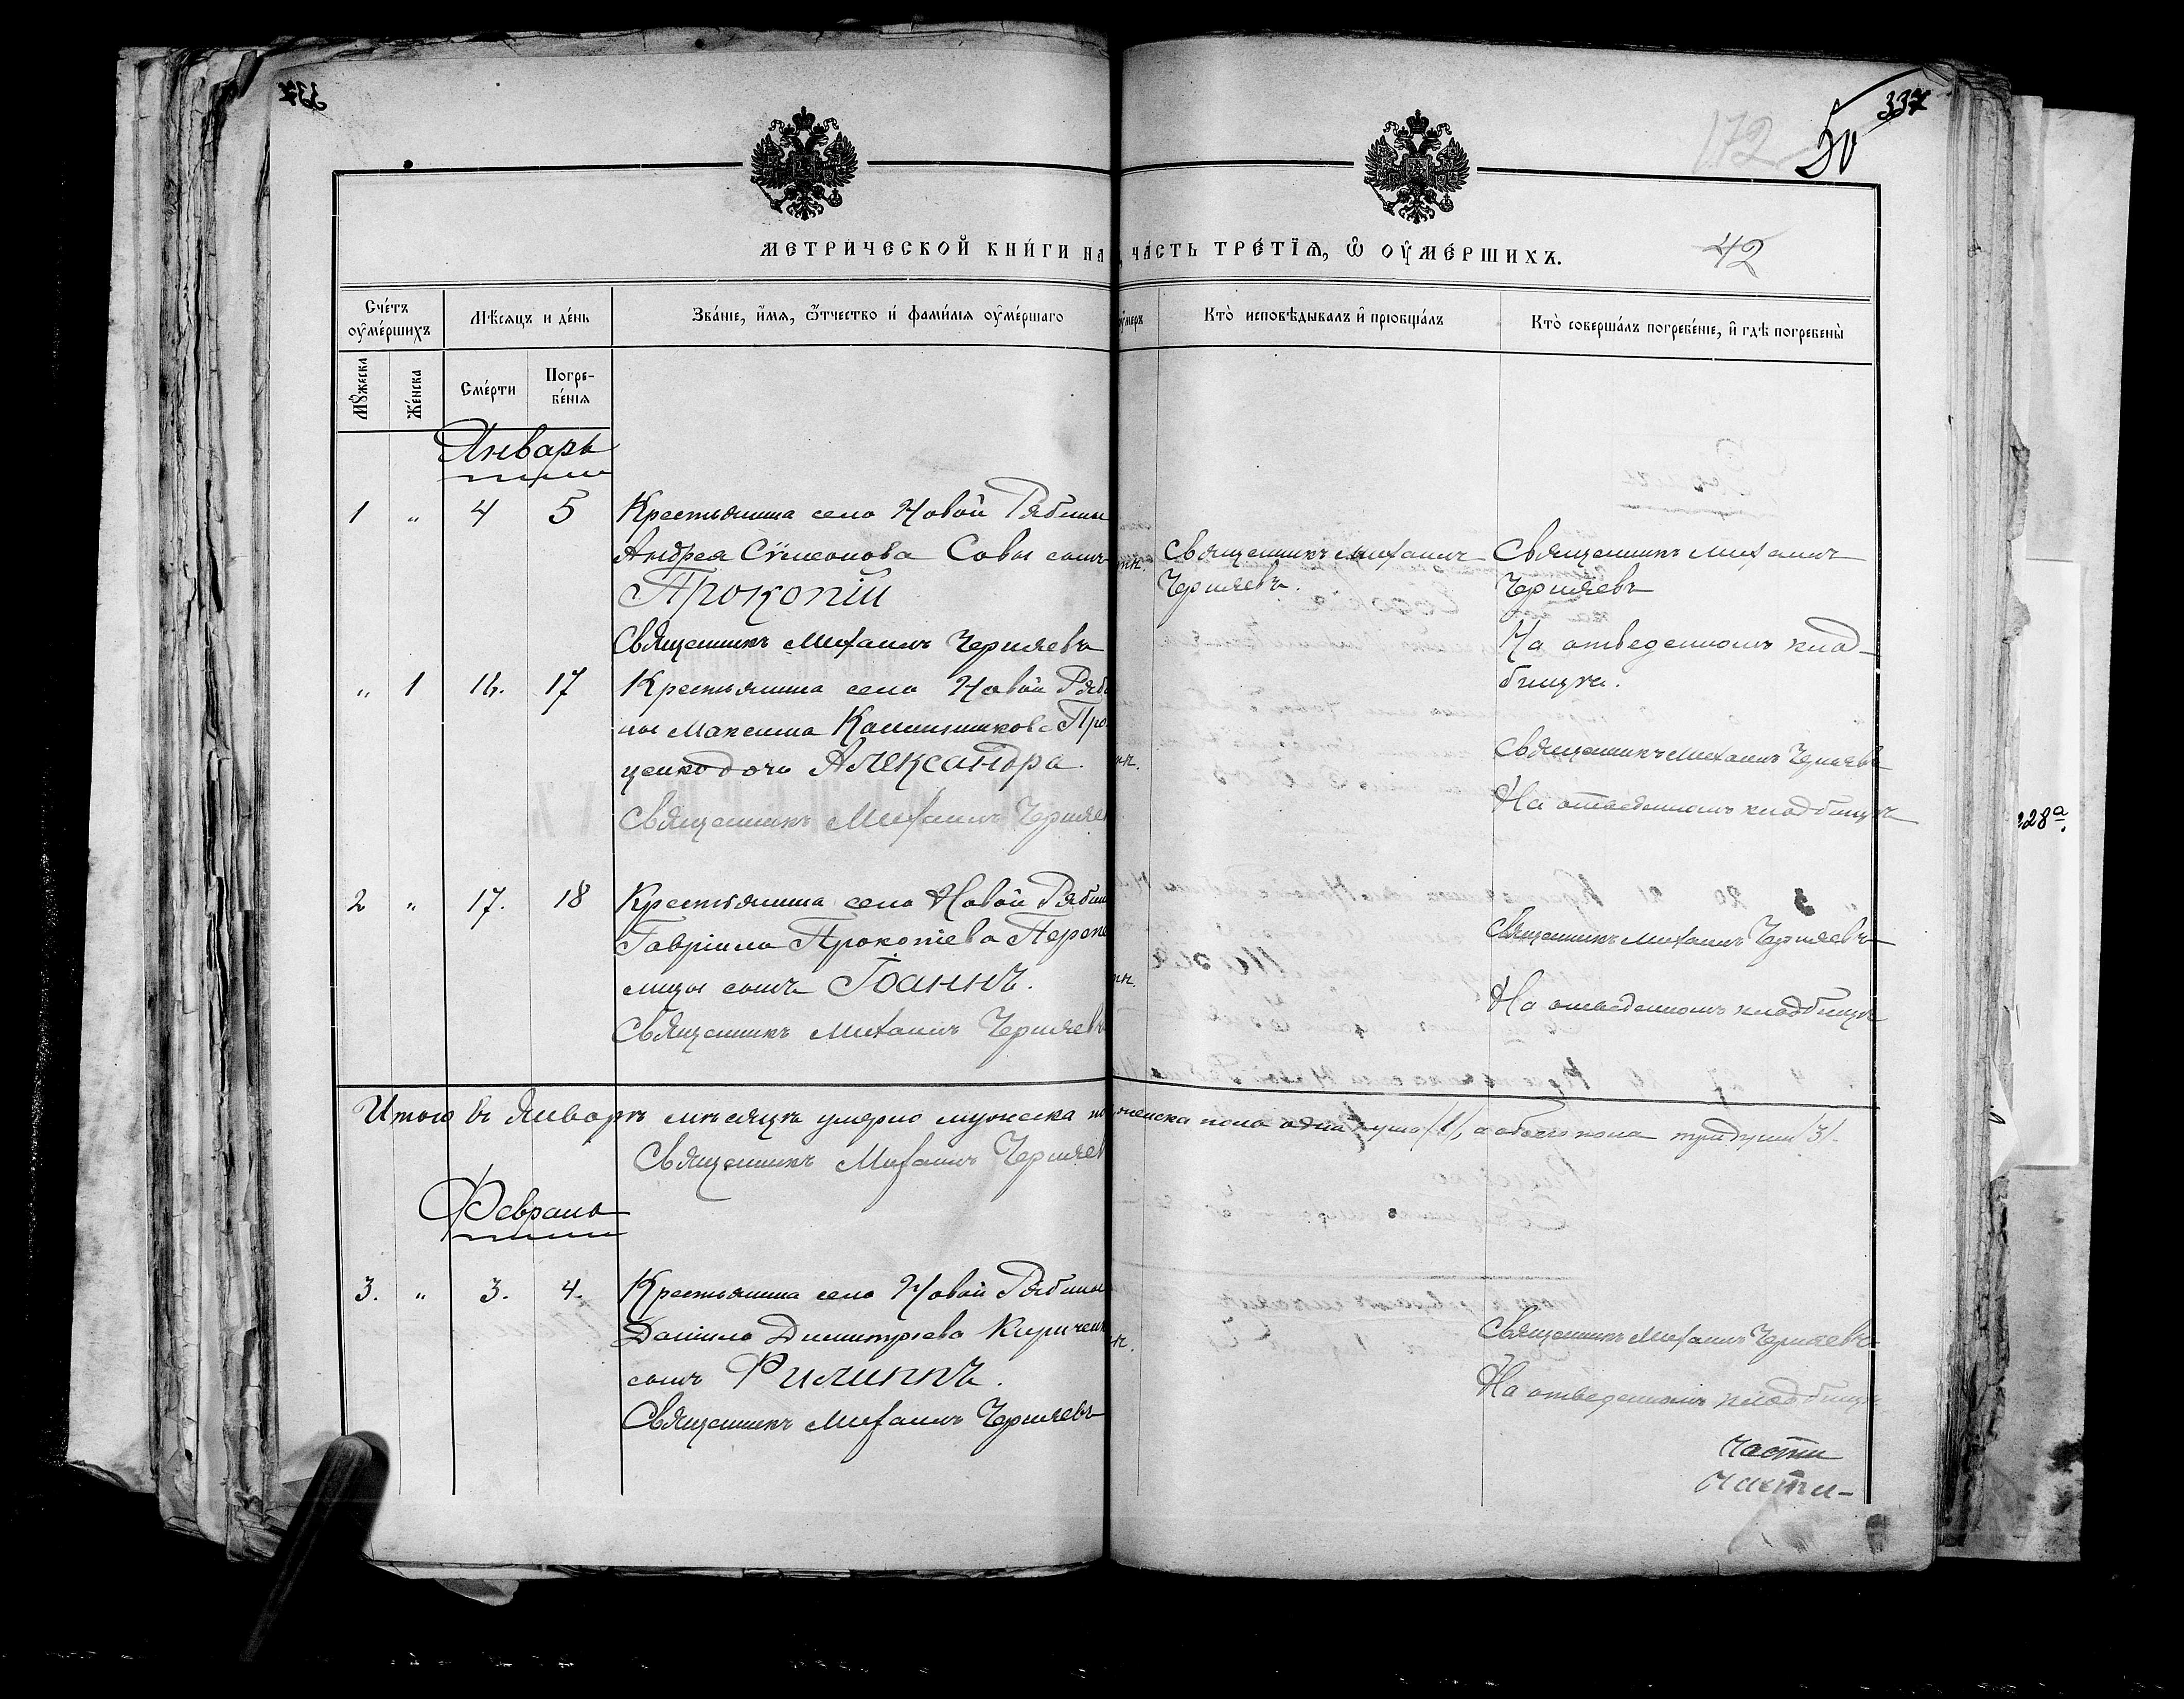 337
172
50
МЕТРИЧЕСКОЙ КНИ́ГИ НА
ЧА́СТЬ ТРЕ́ТЇѦ, Ѡ҆ ОУ҆МЕ́РШИХЪ.
42
Сче́тъ оу҆ме́ршихъ
Мѣ́сяцъ и де́нь
Зва́нїе, и҆́мѧ, ѻ҆́тчество и҆ фами́лїѧ оу҆ме́ршаго
оу҆́меръ
Кто̀ исповѣ́дывалъ и҆ прїобща́лъ
Кто̀ соверша́лъ погребе́нїе, и҆ гдѣ̀ погребены̀
Мꙋ́жеска
Же́нска
Сме́рти
Погре-
бе́нїѧ
Январь
1 „ 4 5 Крестьянина села Новой Рябины
Андрея Сѵмеонова Совы сынъ
Прокопій
Священникъ Михаилъ Черняевъ
Священникъ Михаилъ
Черняевъ.
Священникъ Михаилъ
Черняевъ
На отведенномъ клад-
бищѣ.
„ 1 16. 17 Крестьянина села Новой Ряби
ны Максима Про
ценко дочь Александра.
Священникъ Михаилъ Черняев
Священникъ Михаилъ Черняевъ
На отведенномъ кладбищѣ
2 „ 17. 18 Крестьянина села Новой Рябин
Гавріила Прокопіева Переп
лицы сынъ Іоаннъ.
Священникъ Михаилъ Черняевъ
Священникъ Михаилъ Черняевъ
На отведенномъ кладбищѣ
Итого въ Январѣ мѣсяцѣ умерло мужска по женска пола одна душа /1/, а обоего пола три души /3/.
Священникъ Михаилъ Черняев
Февраль
3. „ 3. 4. Крестьянина села Новой Рябины
Даніила Димитріева Кириченк
сынъ Филиппъ.
Священникъ Михаилъ Черняевъ
Священникъ Михаилъ Черняевъ
На отведенномъ кладбищѣ
Части
Части-
228а.